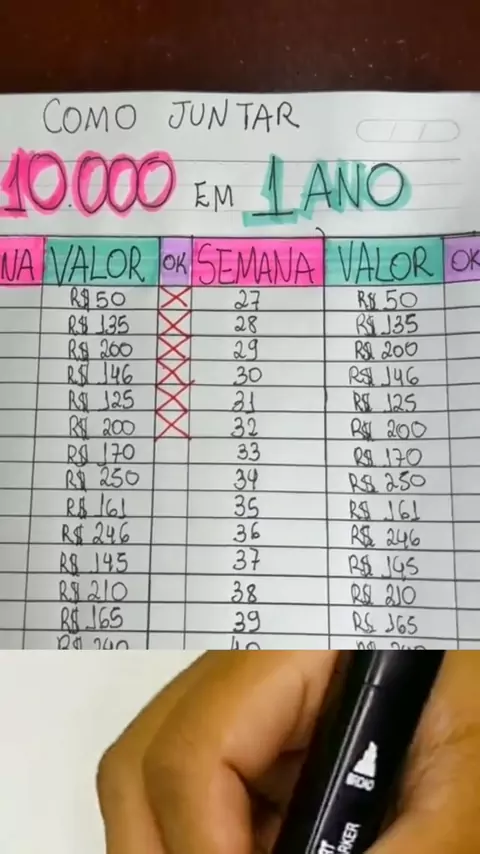 COMO JUNTAR
10.000 EM 1 ANO
NA VALOR OK SEMANA VALOR OK
R$ 50 27 R$ 50
R$ 135 28 R$ 135
R$ 200 29 R$ 200
R$ 146 30 R$ 146
R$ 125 31 R$ 125
R$ 200 32 R$ 200
R$ 170 33 R$ 170
R$ 250 34 R$ 250
R$ 161 35 R$ 161
R$ 246 36 R$ 246
R$ 145 37 R$ 145
R$ 210 38 R$ 210
R$ 165 39 R$ 165